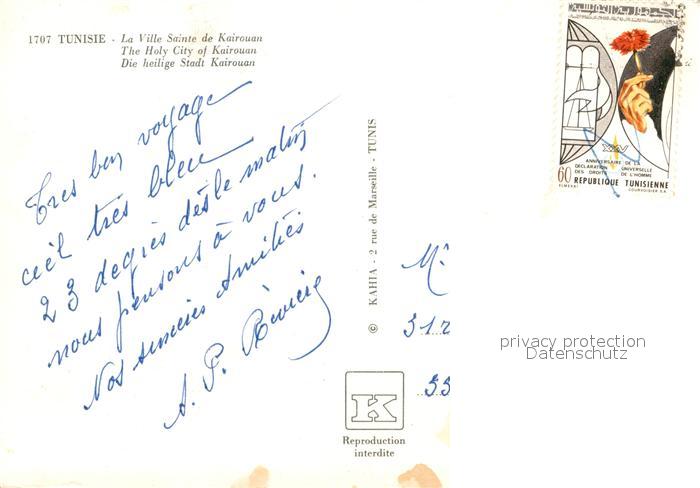 1707 TUNISIE - La Ville Sainte de Kairouan
The Holy City of Kairouan
Die heilige Stadt Kairouan
Très bon voyage
ciel très bleu
23 degrès dès le matin
nous pensons à vous.
Nos sincères Amitiés
A. P.
© KAHIA - 2 rue de Marseille - TUNIS
K
Reproduction
interdite
XXV
ANNIVERSAIRE DE LA
DECLARATION UNIVERSELLE
DES DROITS DE L'HOMME
60 REPUBLIQUE TUNISIENNE
ELMEKKI COURVOISIER S.A.
M.
312
53
privacy protection
Datenschutz